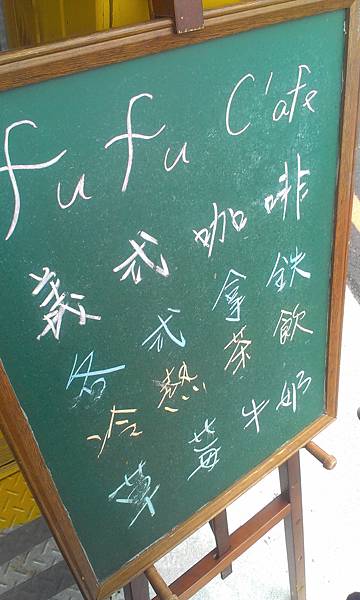 fufu C'afe
義式咖啡
各式拿鐵
冷熱茶飲
草莓牛奶